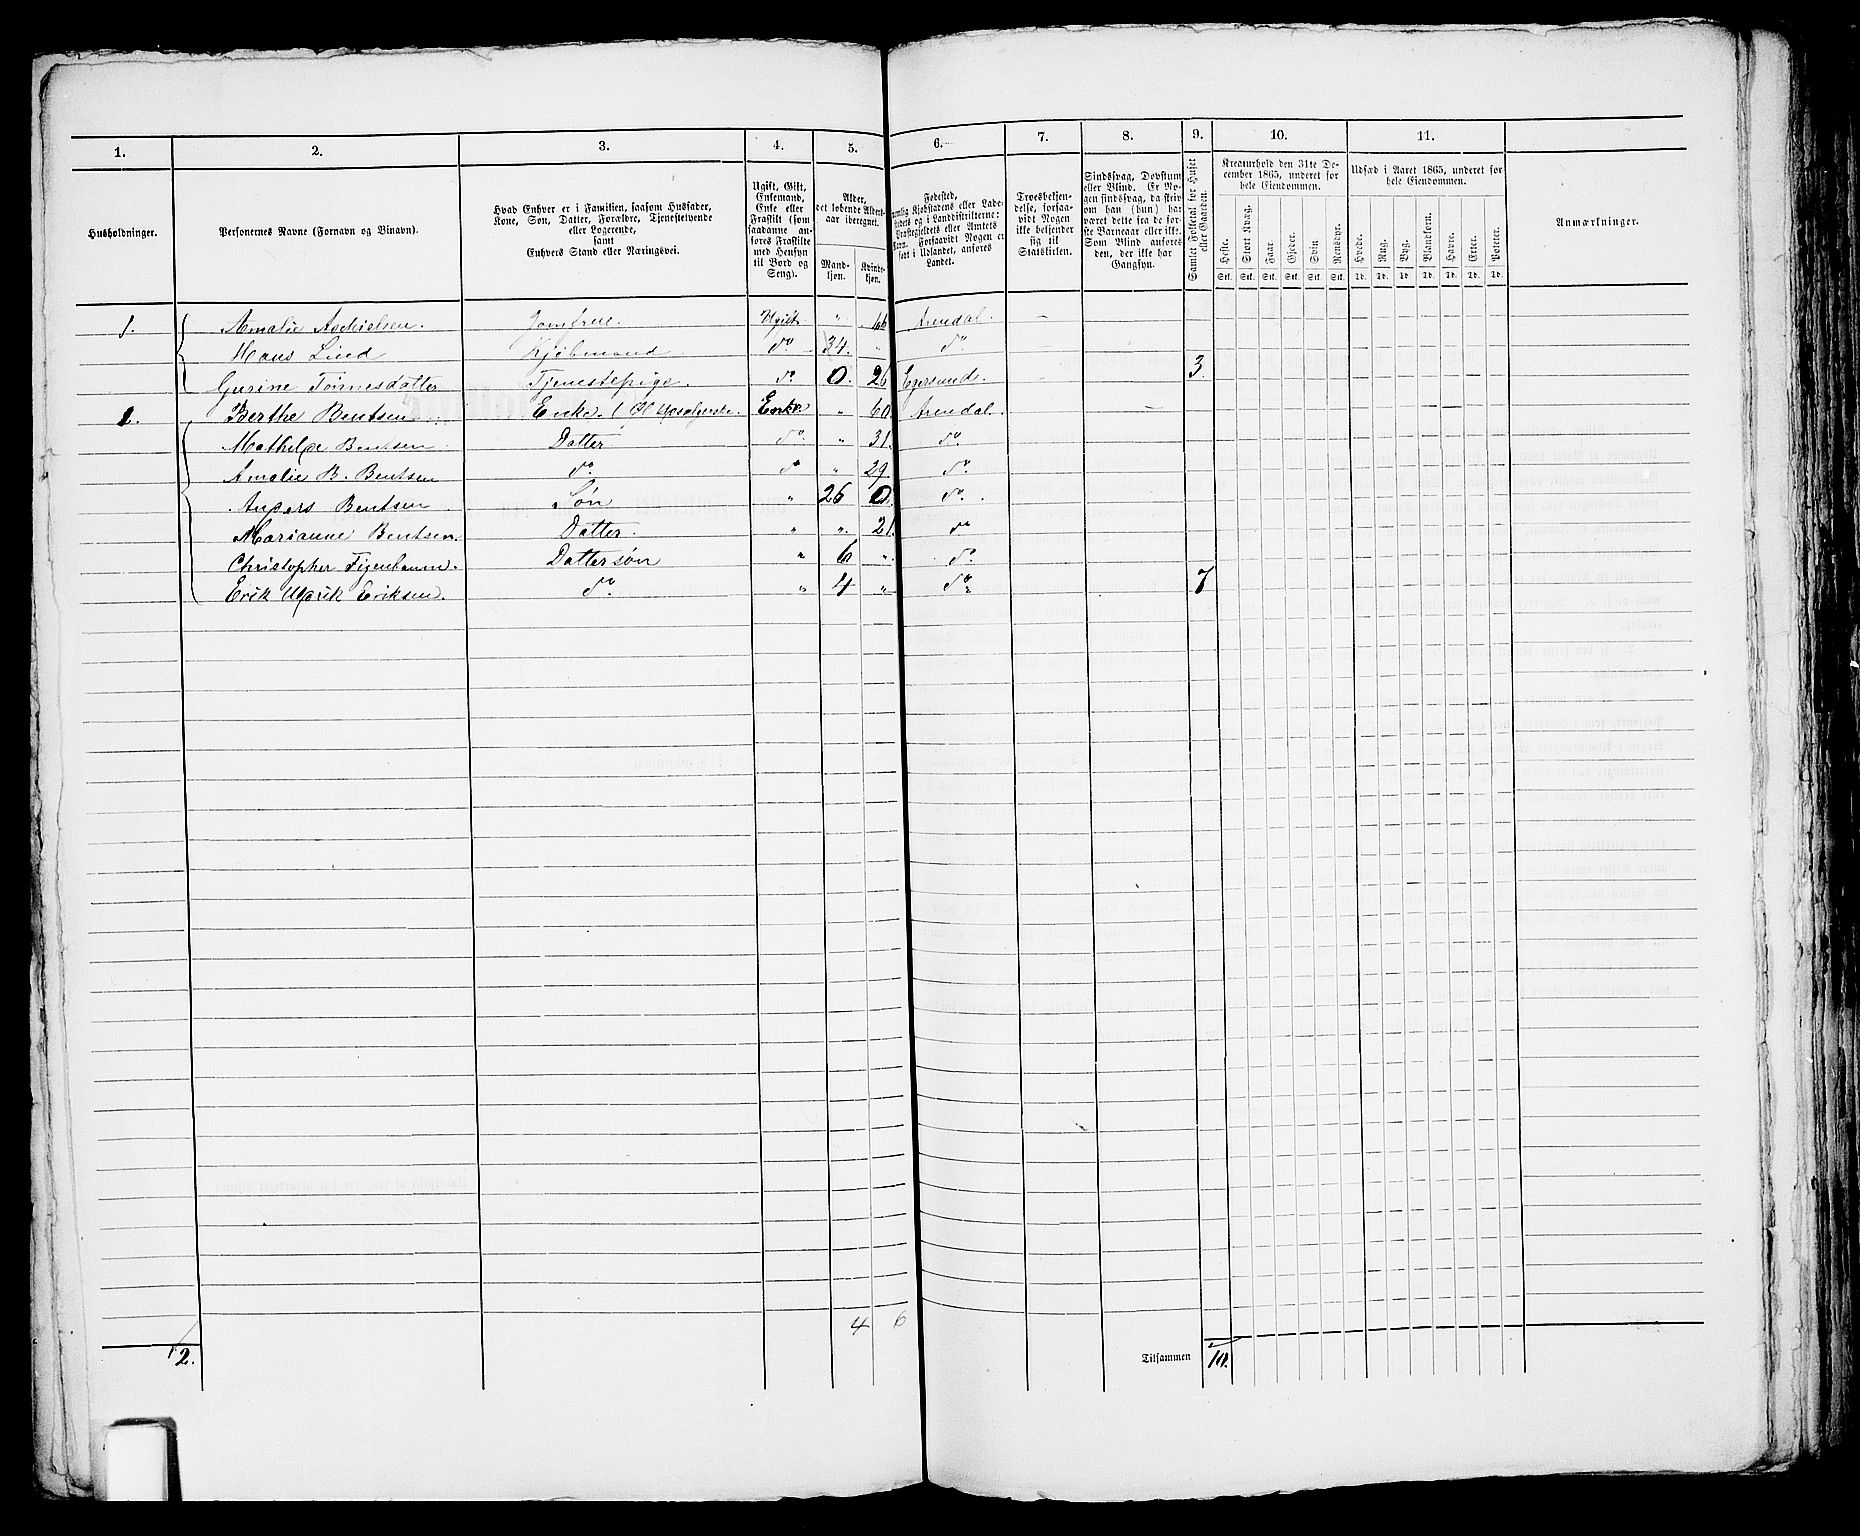 1. 2. 3. 4. 5. 6. 7. 8. 9. 10. 11.
Husholdninger.
Personernes Navne (Fornavn og Binavn).
Hvad Enhver er i Familien, saasom Husfader,
Kone, Søn, Datter, Forældre, Tjenestetyende
eller Logerende,
samt
Enhvers Stand eller Næringsvei.
Ugift, Gift,
Enkemand,
Enke eller
Fraskilt (som
saadanne an-
føres Fraskilte
med Hensyn
til Bord og
Seng).
Alder,
det løbende Alders-
aar iberegnet.
Mand-
kjøn.
Kvinde-
kjøn.
Fødested,
nemlig Kjøbstadens eller Lade-
stedets og i Landdistrikterne:
Præstegjeldets eller Amtets
Navn. Forsaavidt Nogen er
født i Udlandet, anføres
Landet.
Troesbekjen-
delse, forsaa-
vidt Nogen
ikke bekjender
sig til
Statskirken.
Sindssvag, Døvstum
eller Blind. Er No-
gen sindssvag, da skriv
om han (hun) har
været dette fra de før-
ste Barneaar eller ikke.
Som Blind anføres
den, der ikke har
Gangsyn.
Samlet Folketal for Huset
eller Gaarden.
Kreaturhold den 31te De-
cember 1865, underet for
hele Eiendommen.
Heste. Stort Kvæg. Faar. Gjeder. Svin Rensdyr.
Stk. Stk. Stk. Stk. Stk. Stk.
Udsæd i Aaret 1865, underet for
hele Eiendommen.
Hvede. Rug. Byg. Blandkorn. Havre. Erter. Poteter.
Td. Td. Td. Td. Td. Td. Td.
Anmærkninger.
1. Amalie Aschielsen. Jomfrue. Ugift " 66 Arendal. –
Hans Lind Kjøbmand do 34. " do
Gurine Tønnesdatter Tjenestepige. do 0. 26 Egersund. 3.
2. Berthe Bentsen Enke. Enke " 60 Arendal. –
Mathilde Bentsen Datter do. " 31. do.
Amalie B. Bentsen do. do " 29. do.
Anders Bentsen Søn " 26 0. do.
Marianne Bentsen. Datter. " ". 21. do
Christopher Figenbaum. Dattersøn " 6 " do.
Erik Ulrik Eriksen. do. " 4 " do. 7
4 6
2. Tilsammen 10.